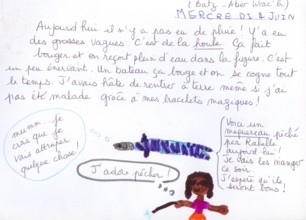 (Batz - Aber Wrac'h)
MERCREDI 4 JUIN
Aujourd'hui il n'y a pas eu de pluie ! Y'a eu
des grosses vagues. C'est de la houle. Ça fait
bouger et on reçoit plein d'eau dans la figure. C'est
un peu énervant. Un bateau ça bouge et on se cogne tout
le temps. J'avais hâte de rentrer à terre même si j'ai
pas été malade grâce à mes bracelets magiques !
mumm je
crois que je
vais attraper
quelque chose !
J'adore pêcher !
Voici un
maquereau pêché
par
aujourd'hui !
Je vais les manger
ce soir.
J'espère qu'ils
seront bons !